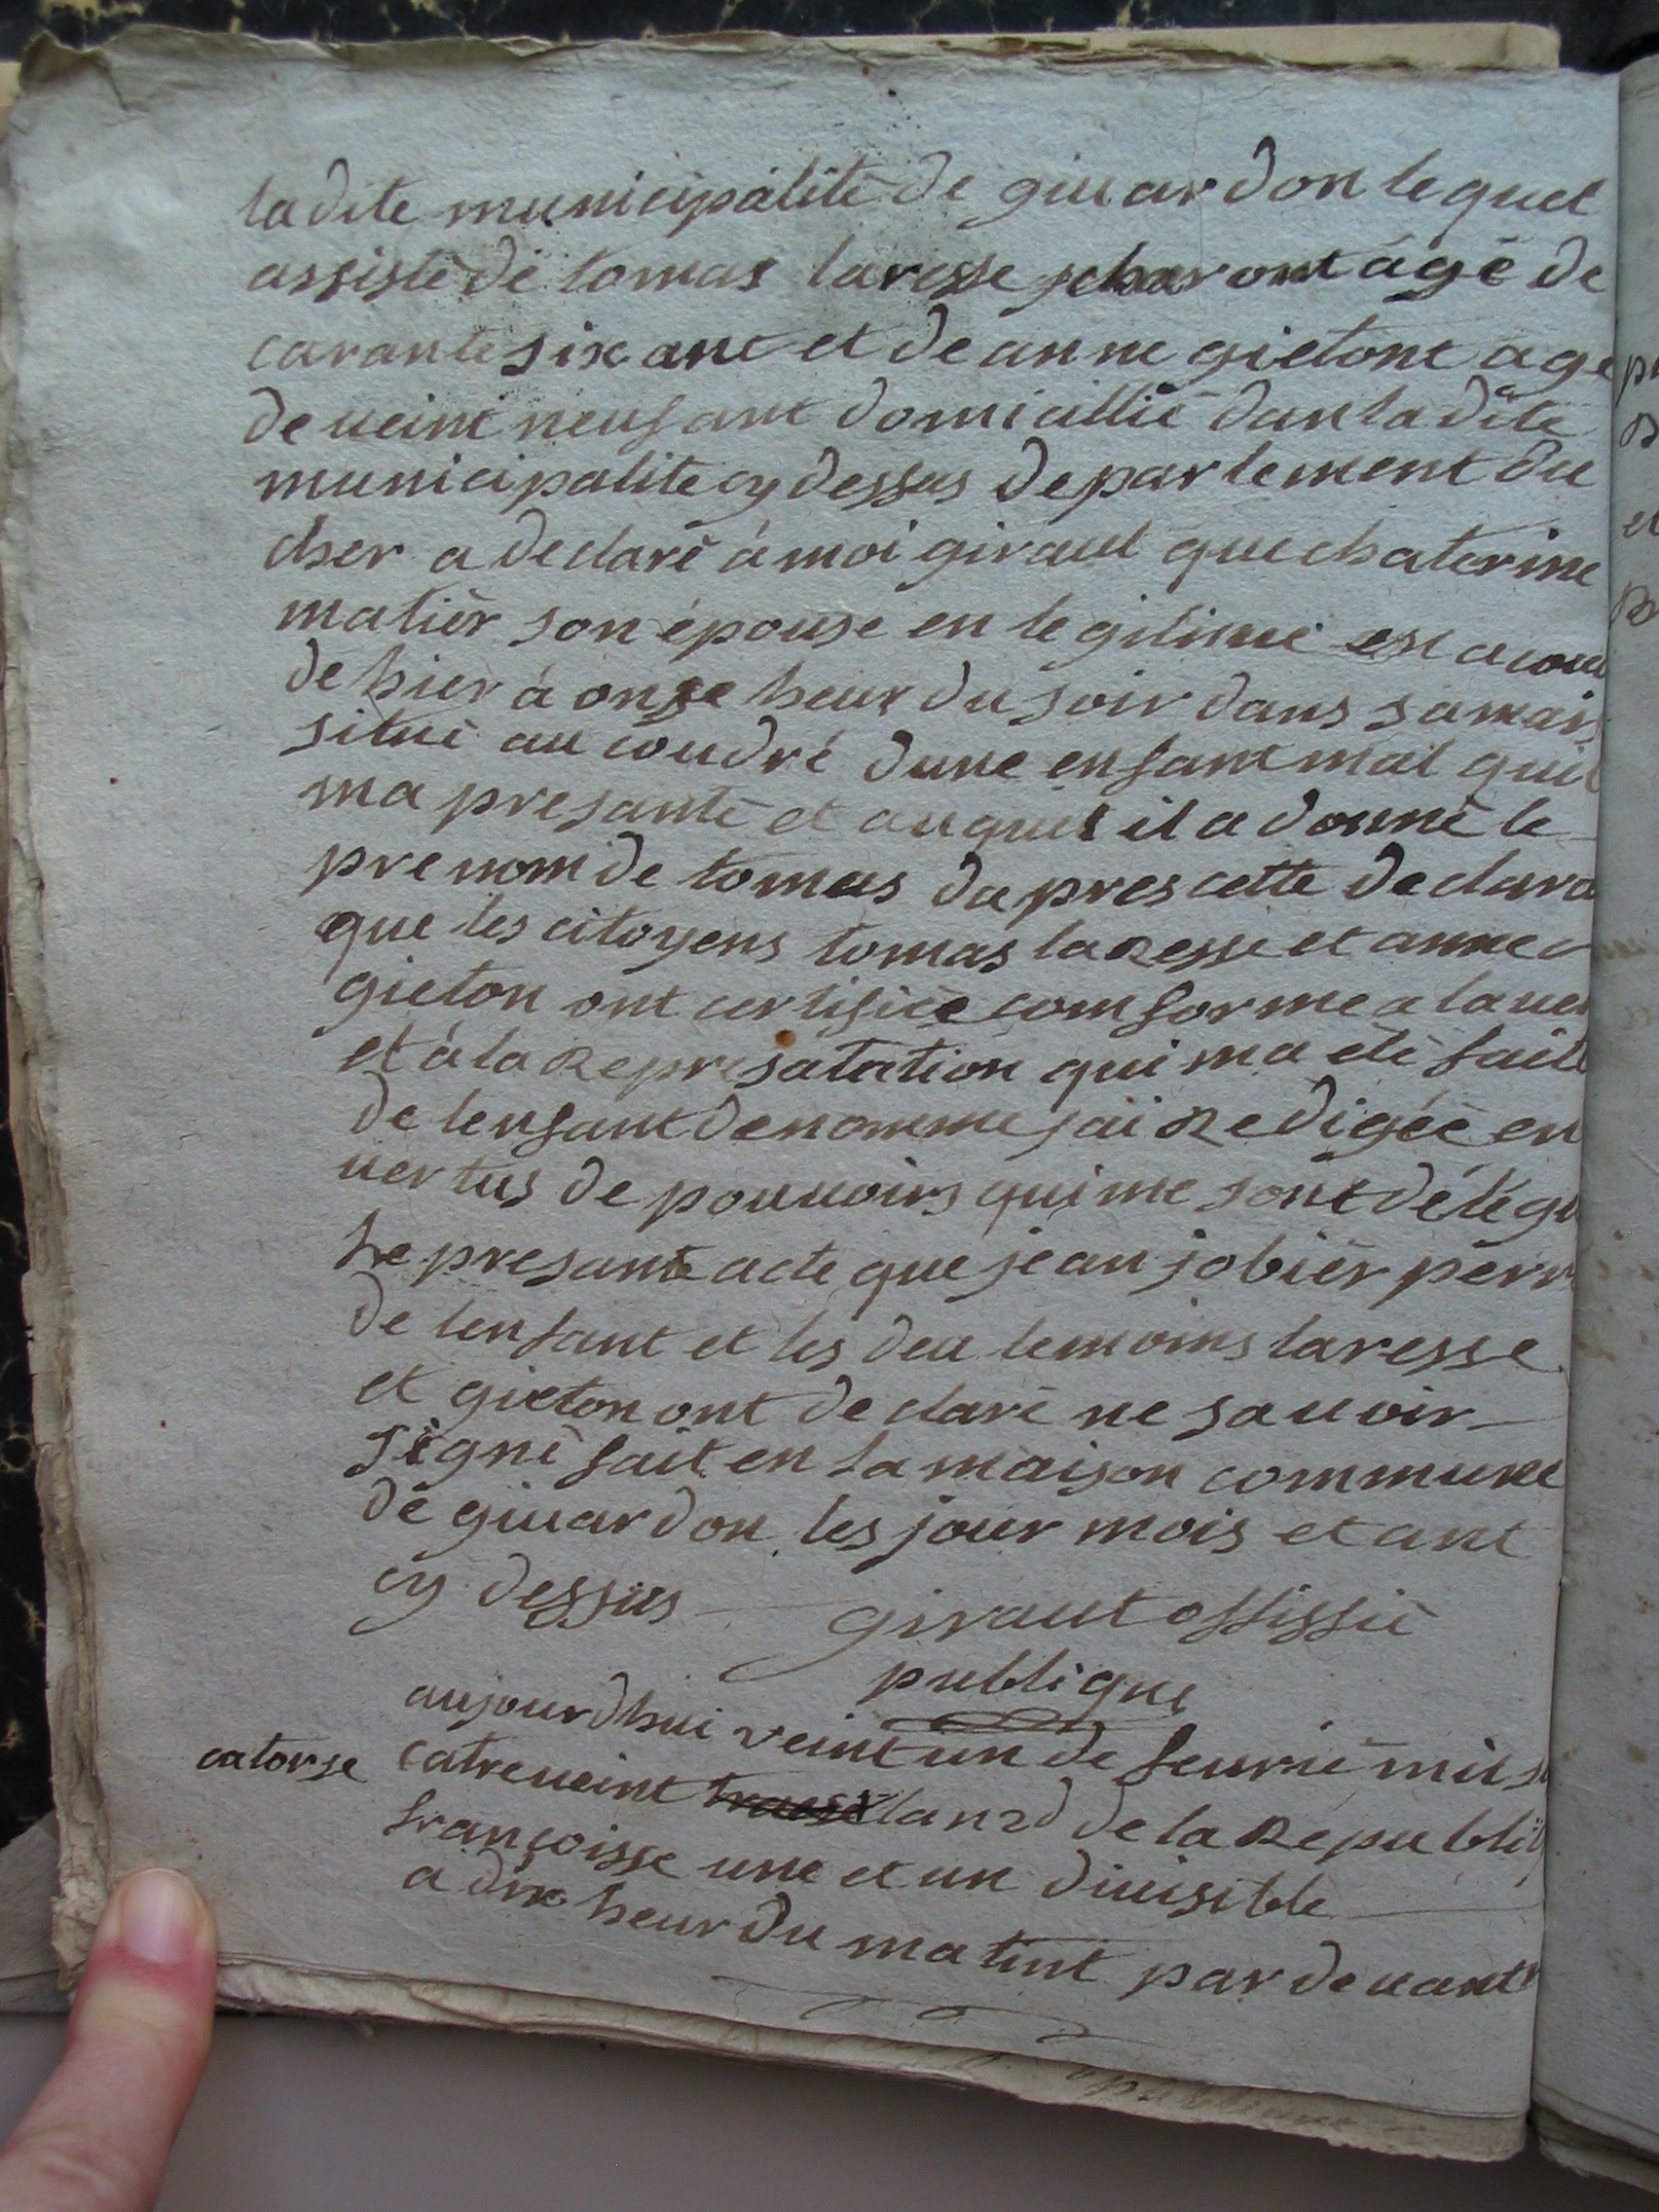 ladite municipalité de giuardon lequel
assisté de tomas laresse charont âgé de
carante six ant et de anne gietont age
de ueint neuf ant domicillié dan la dite
municipalite cy dessus departement du
cher a declaré à moi giraut que chaterine
matiér son épouse en legitime est acou
de hier à onze heur du soir dans sa mais
situé au coudré dune enfant mal quil
ma presanté et auquel il a donné le
prenom de tomas dapres cette declara
que les citoyens tomas laresse et anne
gieton ont certifiée comforme a la ue
et à la represatation qui ma été fait
de lenfant denomme jai redigée en
uertus de pouuoirs qui me sont délégu
le presante acte que jean jobiér perr
de lenfant et les deu temoins laresse
et gieton ont declaré ne sauoir
signé fait en la maison commune
de giuardon les jour mois et ant
cy dessus giraut offissié
publique
aujourdhui veint un de feurié mil s
catorse catreueint lan 2d de la republiq
françoisse une et un diuisible
a dix heur du matint par deuant